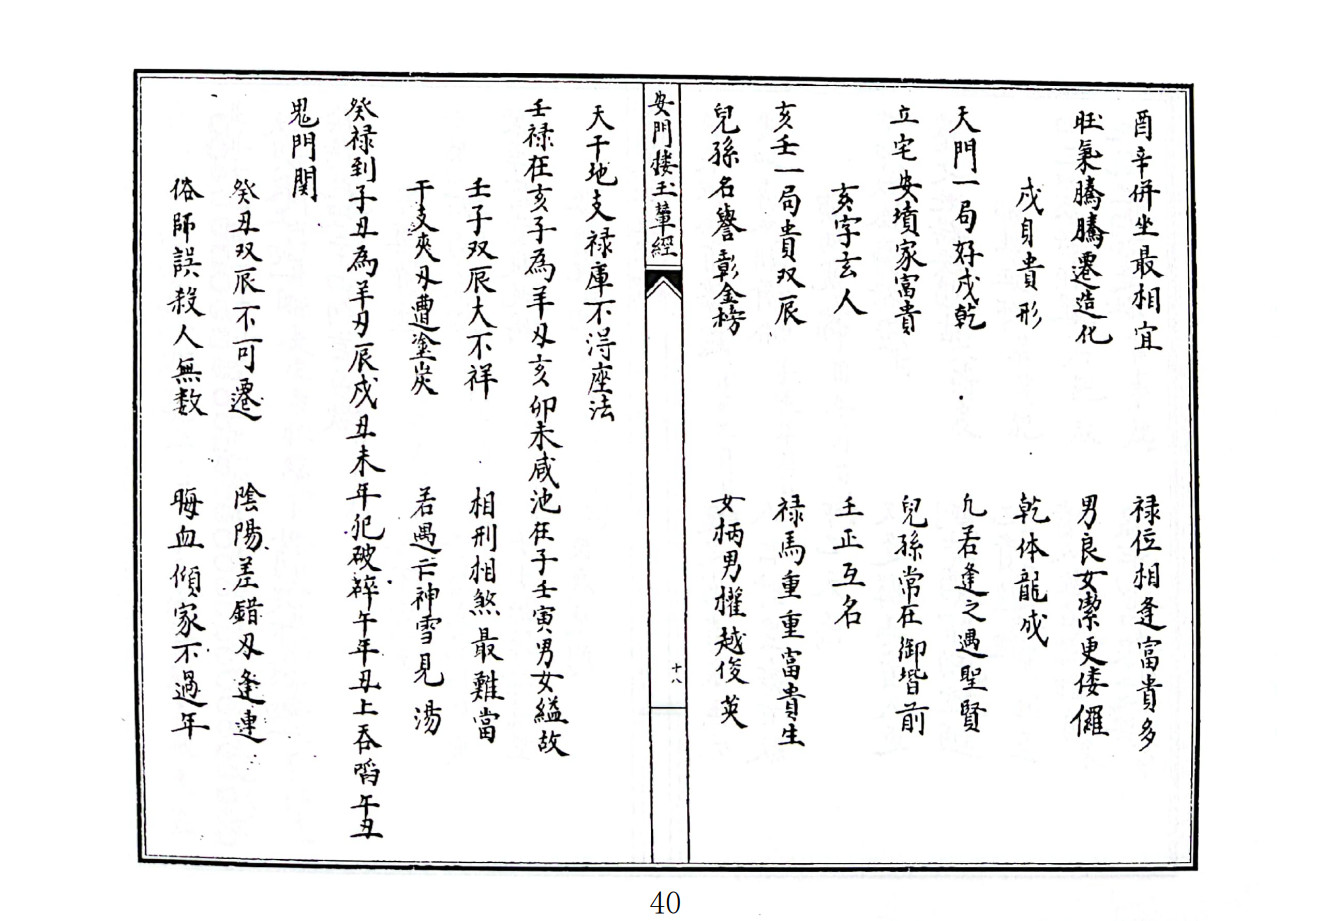 酉辛併坐最相宜　祿位相逢富貴多
旺氣騰騰遷造化　男良女潔更倭儸
戌自貴形　乾体龍成
天門一局好戌乾　凢若逢之遇聖賢
立宅安墳家富貴　兒孫常在御堦前
亥字玄人　壬正互名
亥壬一局貴双辰　禄馬重重富貴生
兒孫名譽彰金榜　女柄男權越俊英
安門接玉輦經
十八
天干地支禄庫不淂座法
壬禄在亥子為羊刄亥卯未咸池在子壬寅男女縊故
壬子双辰大不祥　相刑相煞最難當
干支夾刄遭塗炭　若遇亡神雪見湯
癸禄到子丑為羊刃辰戌丑未年犯破碎午年丑上吞啗午丑
鬼門関
癸丑双辰不可遷　陰陽差錯刄逢連
俗師誤殺人無数　晦血傾家不過年
40